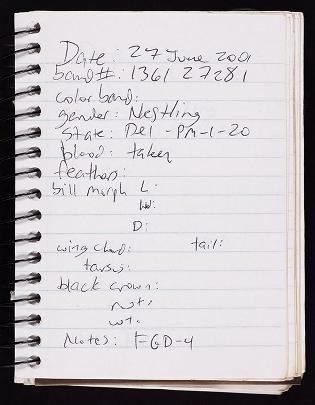 Date: 27 June 2001
band#: 1361 27281
color band:
gender: Nestling
State: DE1-PM-1-20
blood: taken
feathers:
bill morph L:
W:
D:
wing chord: tail:
tarsus:
black crown:
not:
wt:
Notes: FGD-4